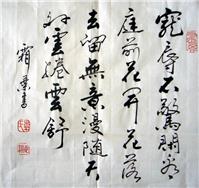 宠辱不驚閒看
庭前花開花落
去留無意漫随天
外雲捲雲舒
霜葉書